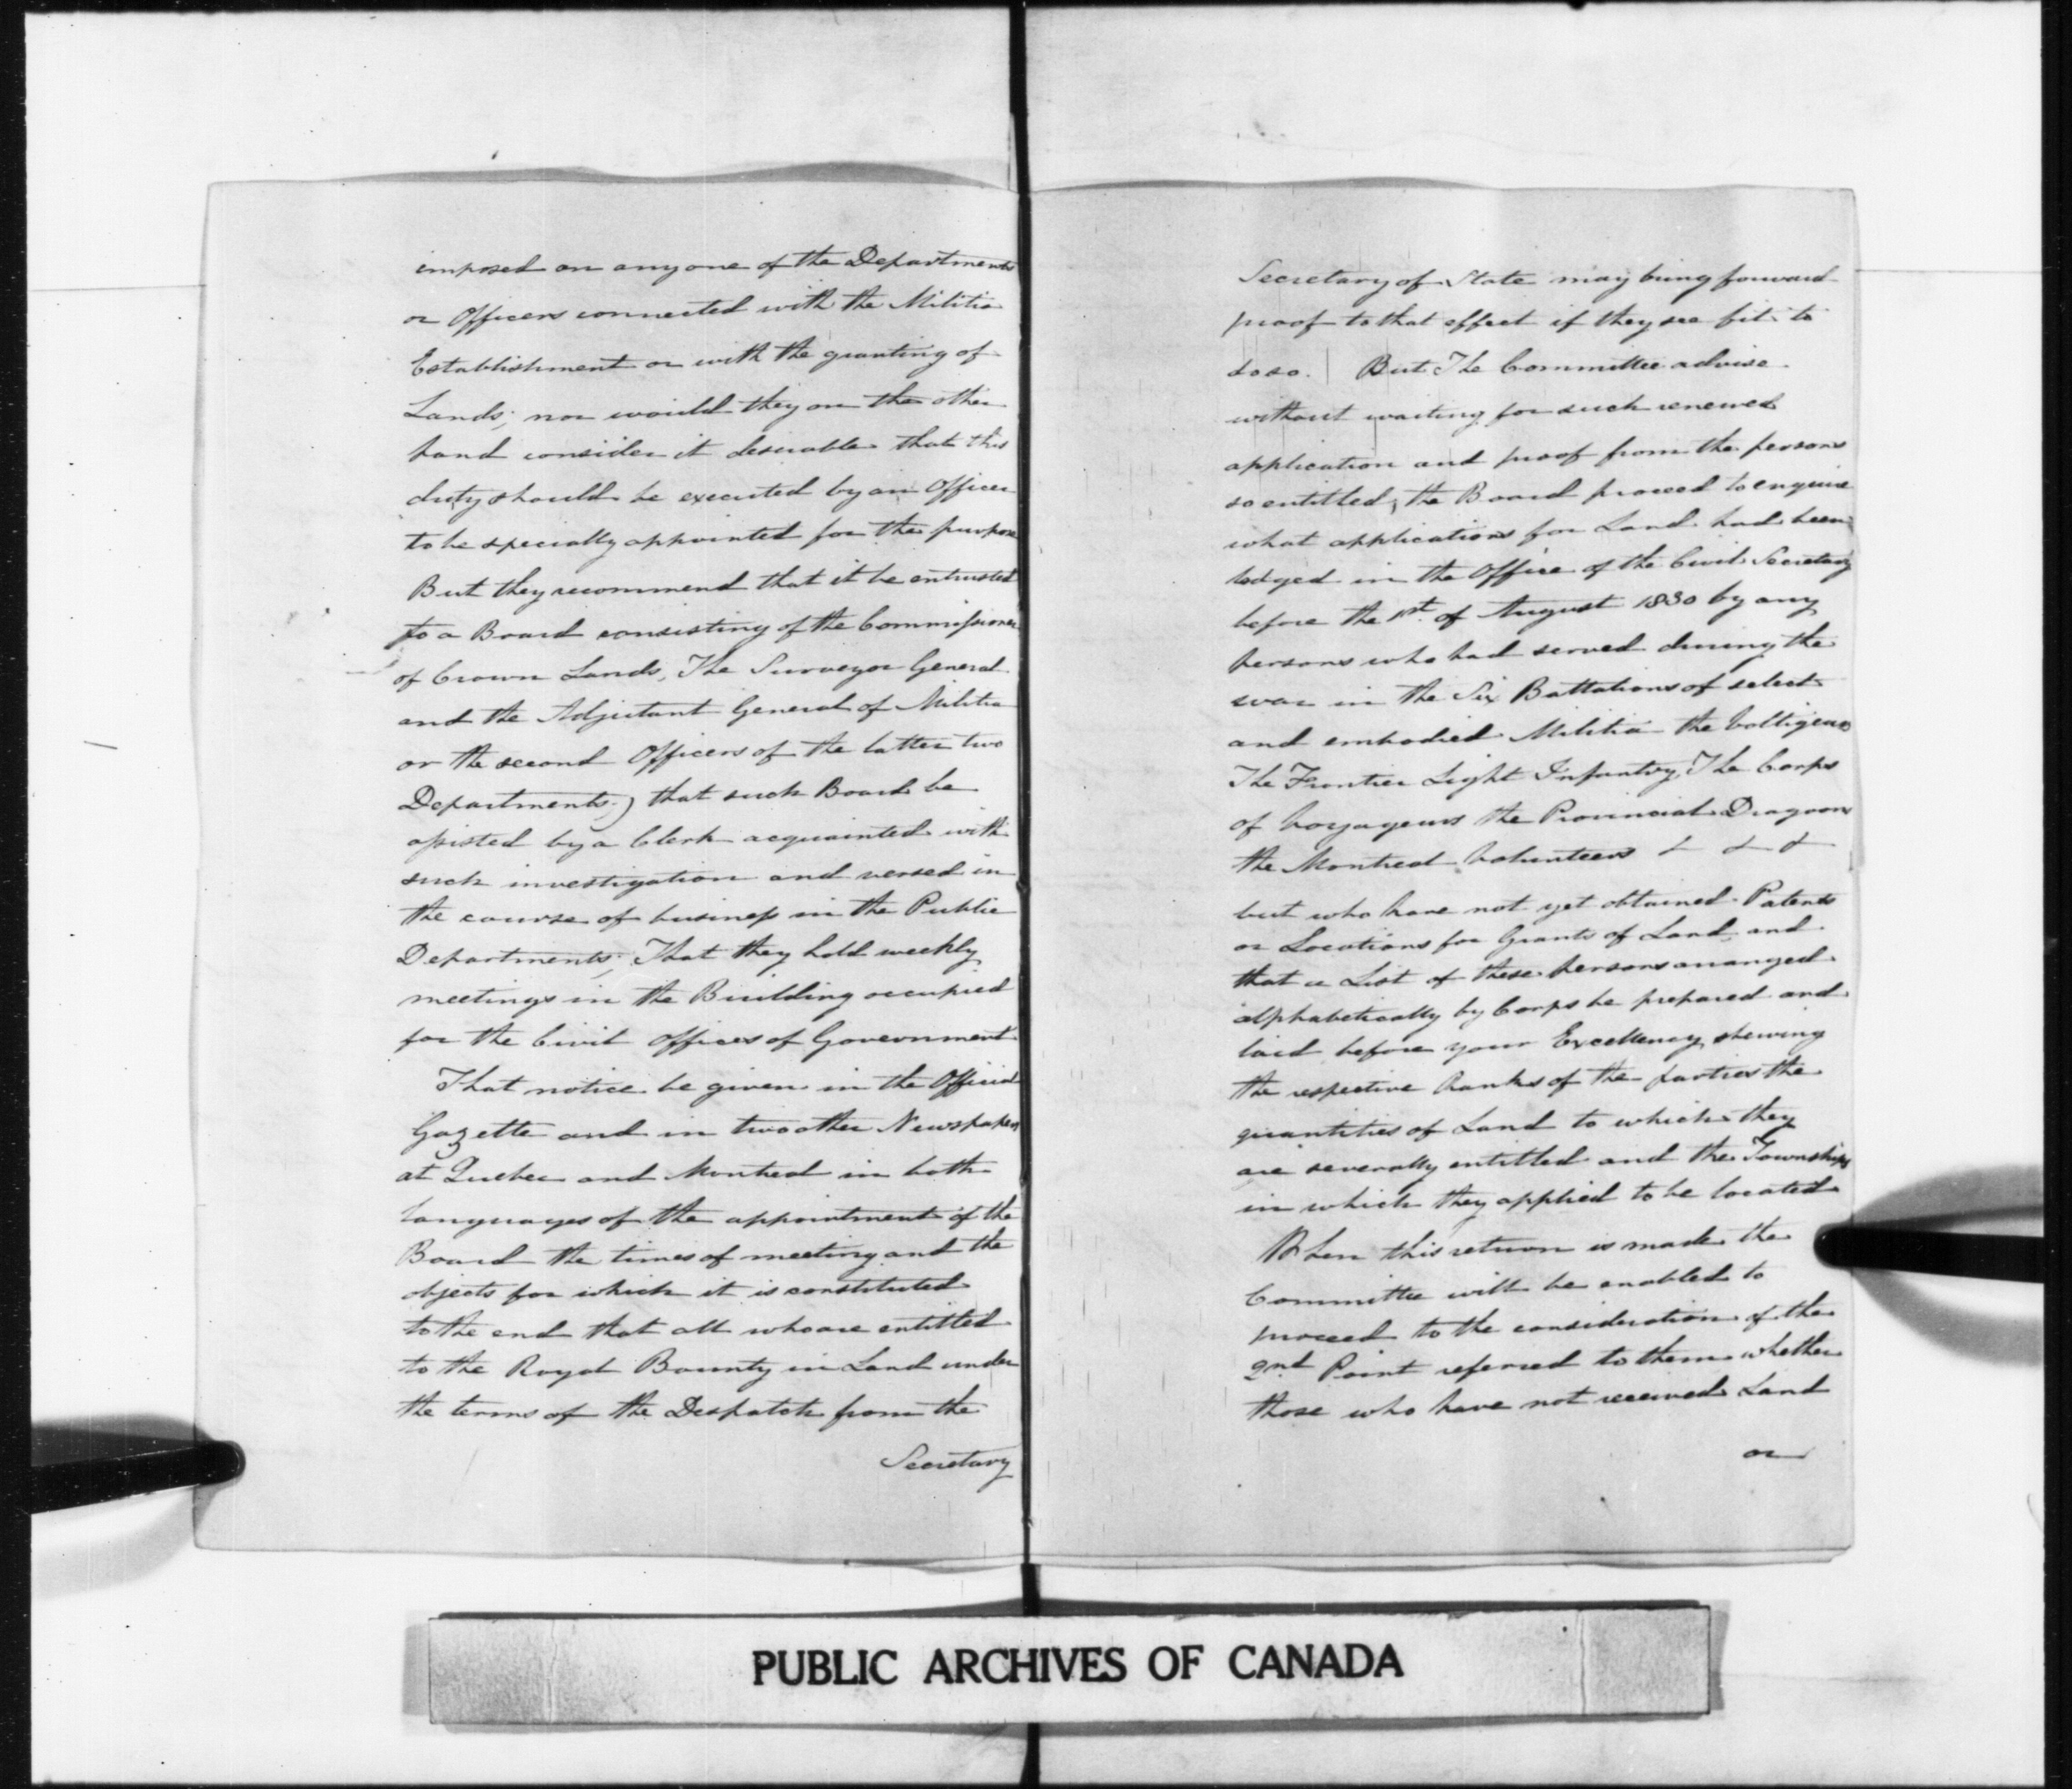 imposed on any one of the Departments
or Officers connected with the Militia
Establishment or with the granting of
Lands; nor would they on the other
hand consider it desirable that this
duty should be executed by an Officer
to be specially appointed for the purpose
But they recommend that it be entrusted
to a Board consisting of the Commissioner
of Crown Lands, The Surveyor General
and the Adjutant General of Militia
or the second Officers of the latter two
Departments;) that such Board be
assisted by a Clerk acquainted with
such investigation and versed in
the course of business in the Public
Departments; That they hold weekly
meetings in the Building occupied
for the Civil Offices of Government
That notice be given in the Official
Gazette and in two other Newspapers
at Quebec and Montreal in both
languages of the appointment of the
Board the times of meeting and the
objects for which it is constituted
to the end that all who are entitled
to the Royal Bounty in Land under
the terms of the Despatch from the
Secretary
Secretary of State may bring forward
proof to that effect if they see fit to
do so. | But The Committee advise
without waiting for such renewed
application and proof from the persons
so entitled, the Board proceed to enquire
what applications for Land had been
lodged in the Office of the Civil Secretary
before the 1st. of August 1830 by any
persons who had served during the
war in the Six Battalions of select
and embodied Militia the Voltigeurs
The Frontier Light Infantry, The Corps
of Voyageurs the Provincial Dragoons
the Montreal Volunteers & & &
but who have not yet obtained Patents
or Locations for Grants of Land and
that a List of these persons arranged
alphabetically by Corps be prepared and
laid before your Excellency shewing
the respective Ranks of the parties the
quantities of Land to which they
are severally entitled and the Townships
in which they applied to be located
When this return is made the
Committee will be enabled to
proceed to the consideration of the
2nd. Point referred to them whether
those who have not received Land
or
PUBLIC ARCHIVES OF CANADA